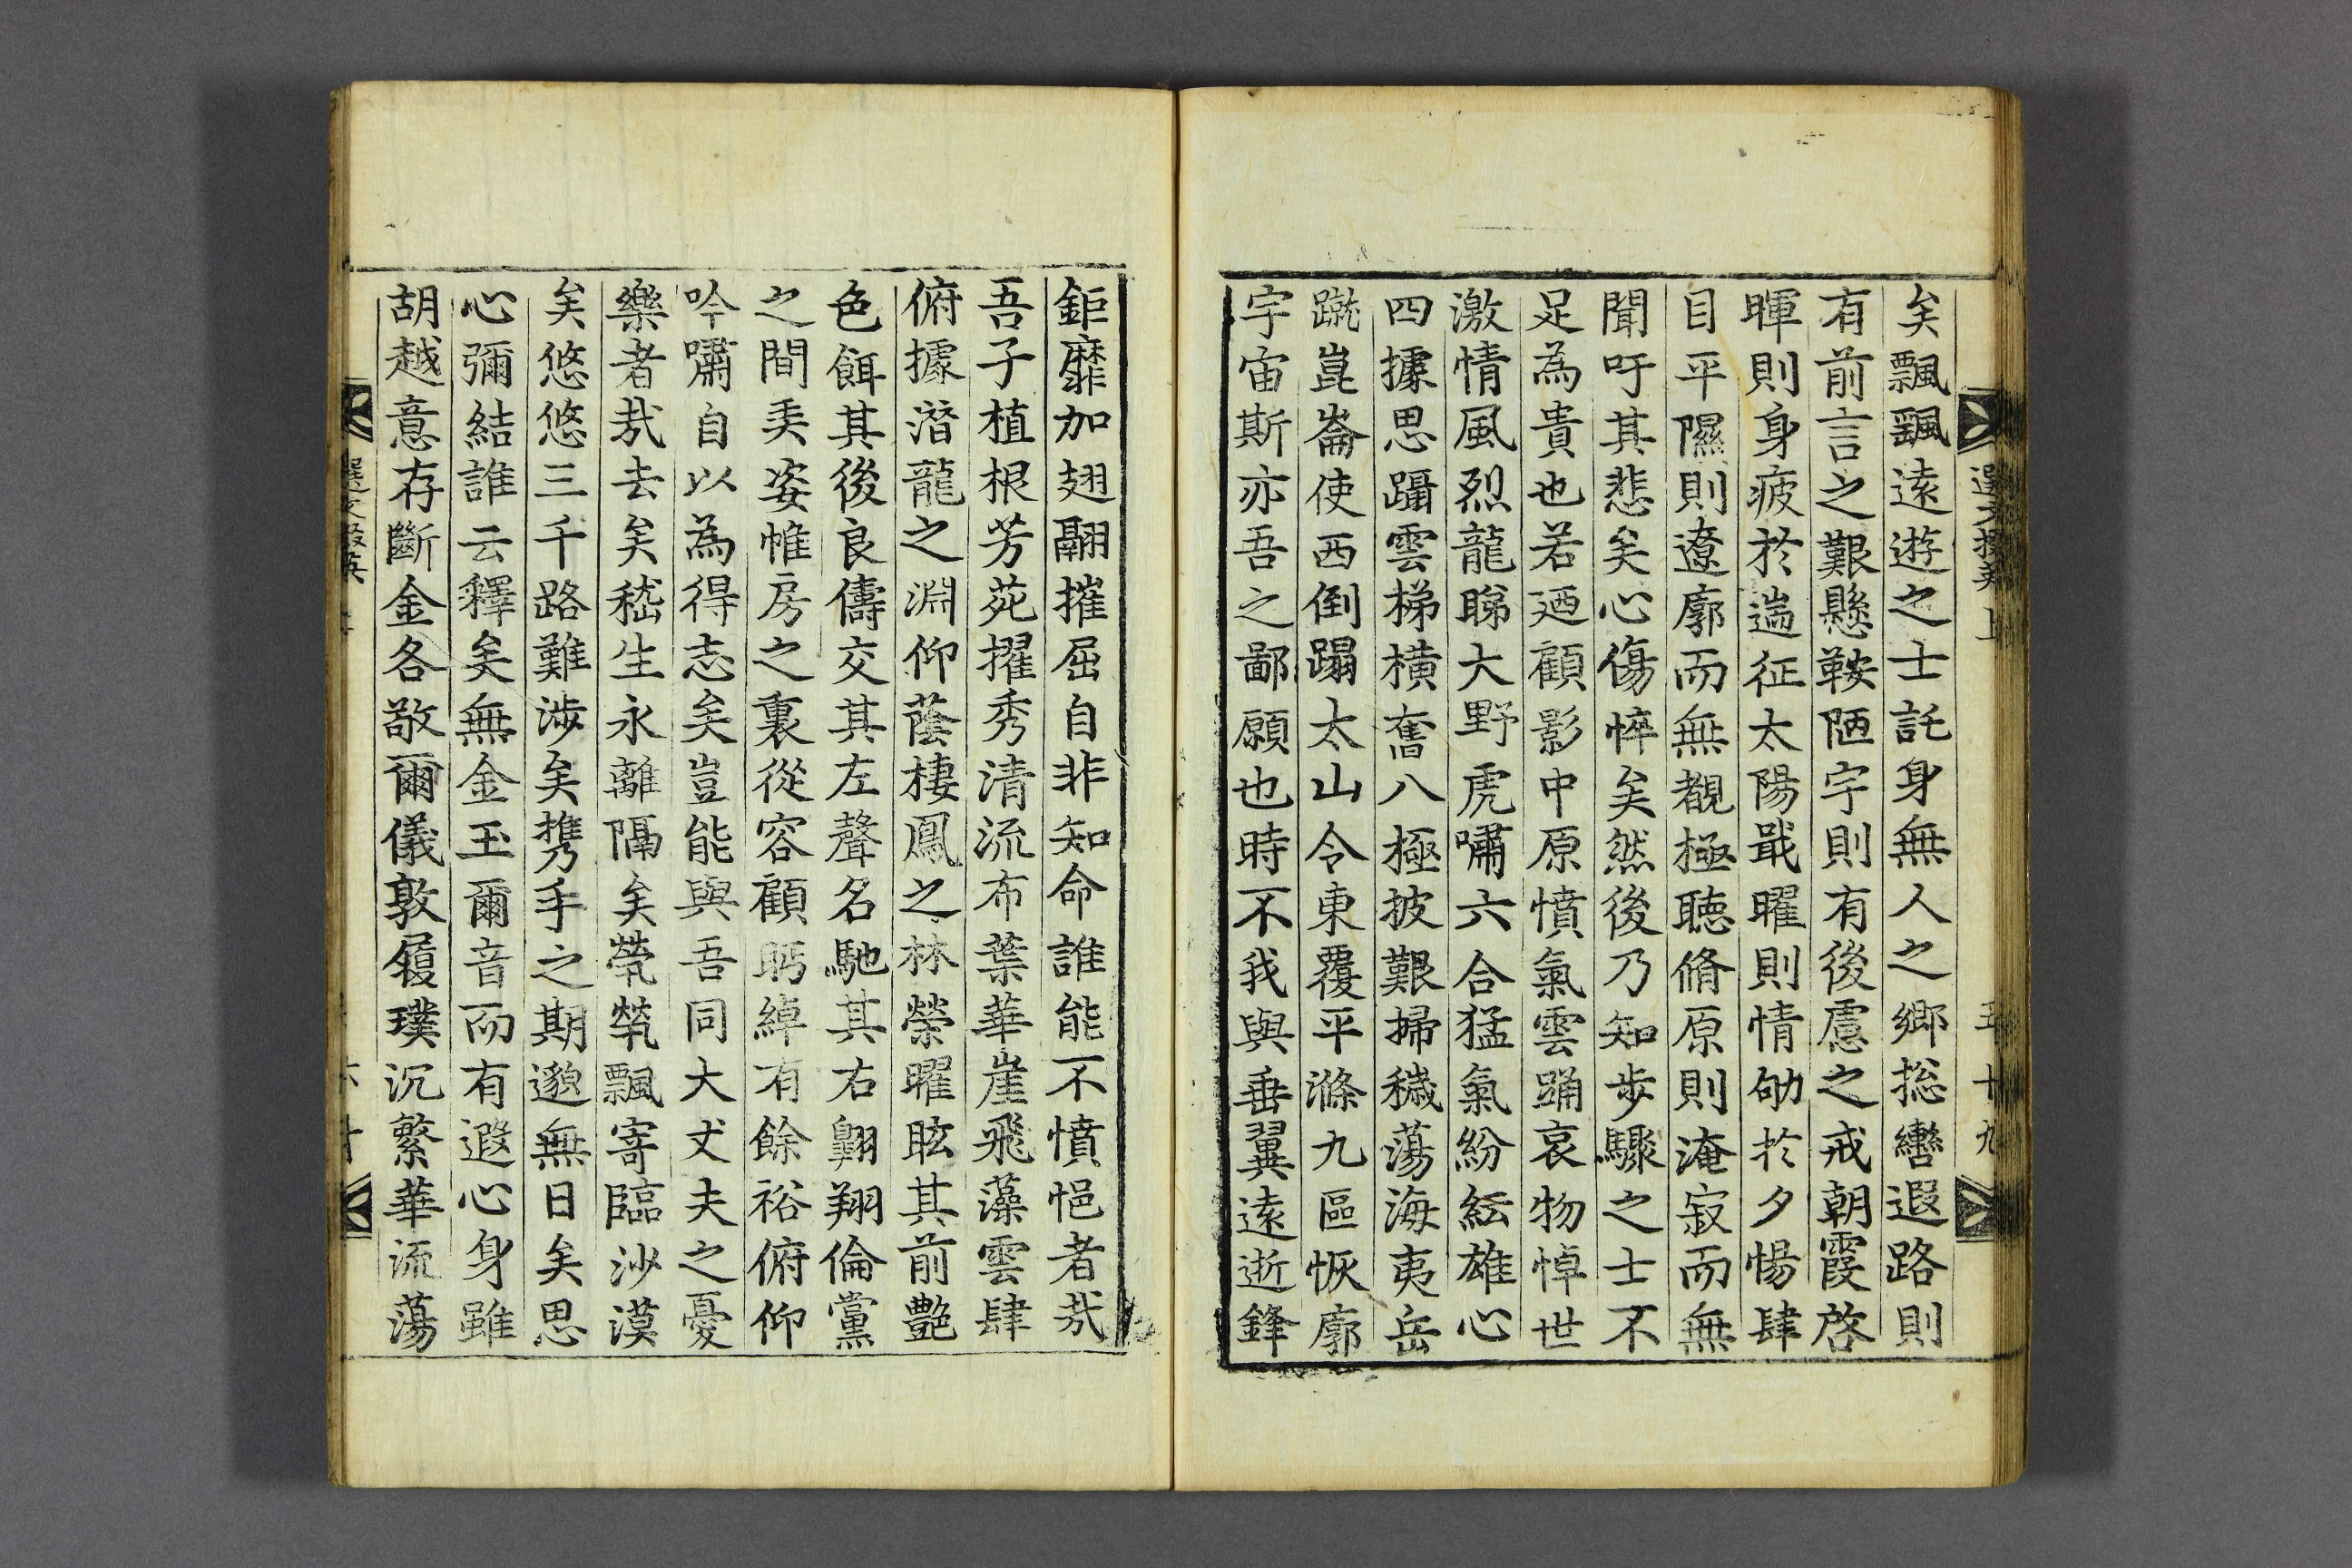 選文掇英 上 五十九
矣飄飄遠遊之士託身無人之鄉揔轡遐路則
有前言之艱懸鞍陋宇則有後慮之戒朝霞啓
暉則身疲於遄征太陽戢曜則情劬於夕惕肆
目平隰則遼廓而無覩極聽脩原則淹寂而無
聞吁其悲矣心傷悴矣然後乃知步驟之士不
足為貴也若迺顧影中原憤氣雲踊哀物悼世
激情風烈龍睇大野虎嘯六合猛氣紛紜雄心
四據思躡雲梯橫奮八極披艱掃穢蕩海夷岳
蹴崑崙使西倒蹋太山令東覆平滌九區恢廓
宇宙斯亦吾之鄙願也時不我與垂翼遠逝鋒
鉅靡加翅翮摧屈自非知命誰能不憤悒者㢤
吾子植根芳苑擢秀清流布葉華崖飛藻雲肆
俯據潛龍之淵仰蔭棲鳳之林榮曜眩其前艶
色餌其後良儔交其左聲名馳其右翱翔倫黨
之間奏姿帷房之裏從容顧眄綽有餘裕俯仰
吟嘯自以為得志矣豈能與吾同大丈夫之憂
樂者㢤去矣嵇生永離隔矣煢煢飄寄臨沙漠
矣悠悠三千路難涉矣携手之期邈無日矣思
心彌結誰云釋矣無金玉爾音而有遐心身雖
胡越意存斷金各敬爾儀敦履璞沉繁華流蕩
選文掇英 六十